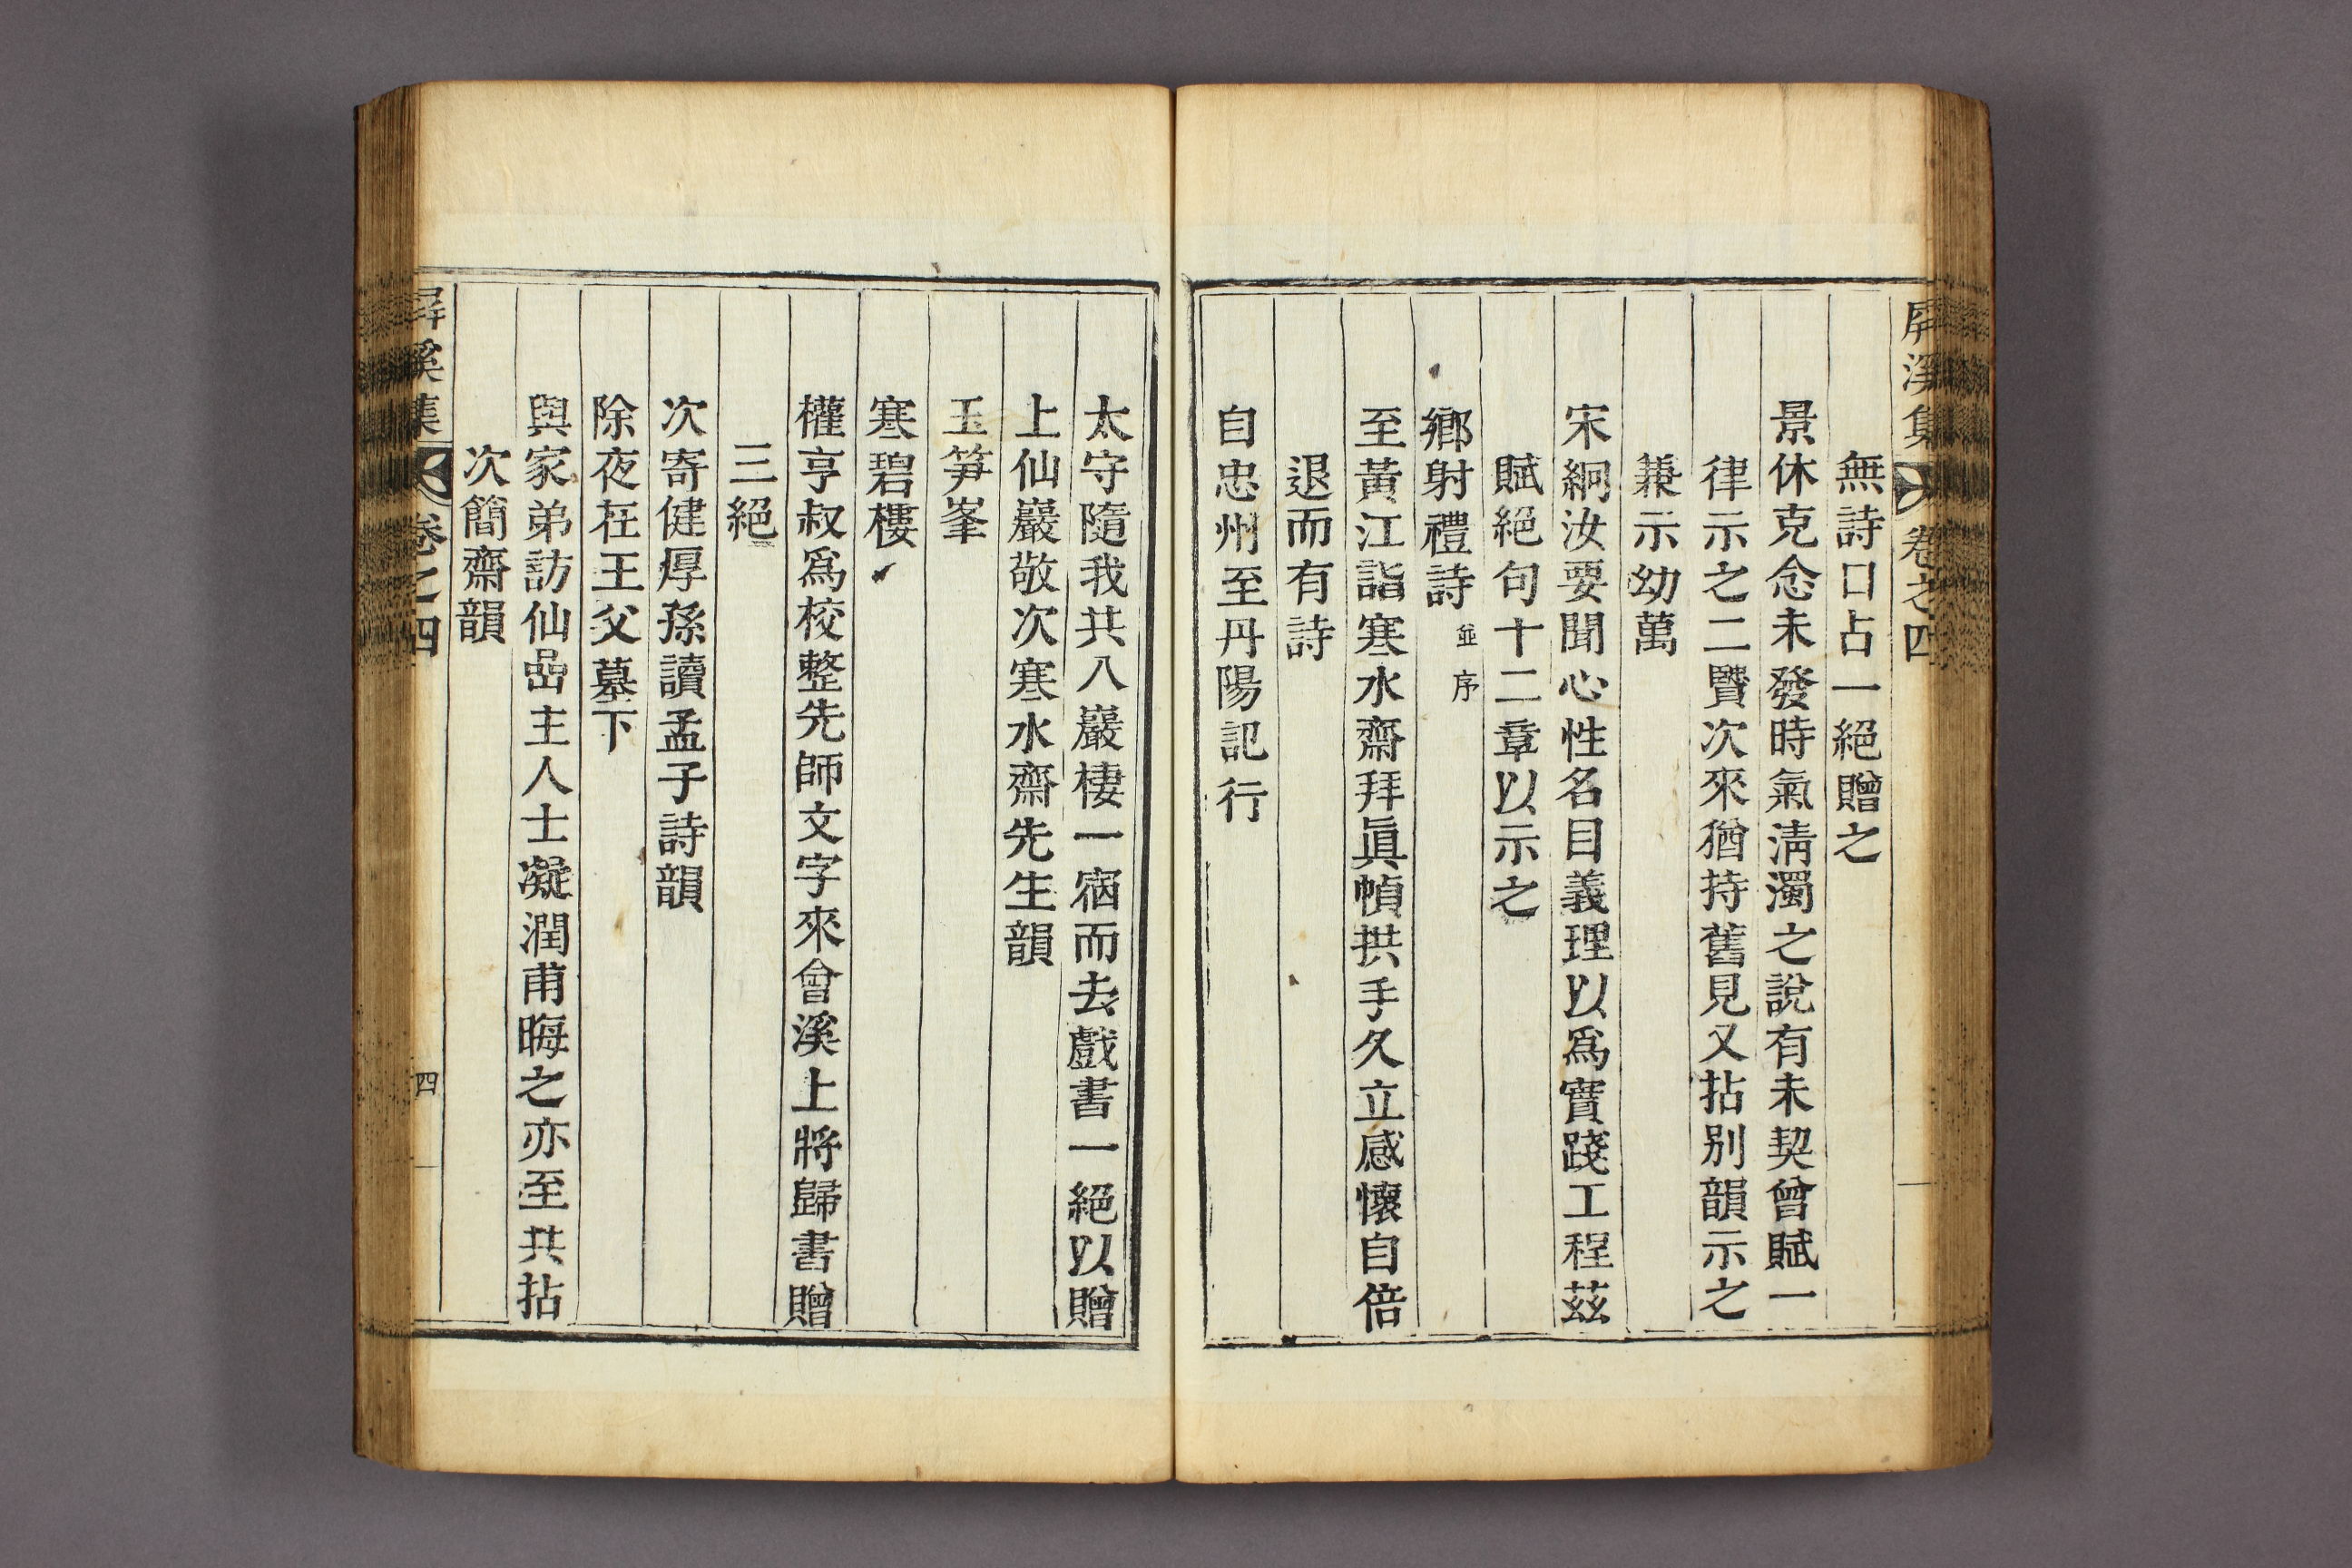 屏溪集 卷之四
無詩口占一絕贈之
景休克念未發時氣淸濁之說有未契曾賦一
律示之二賢次來猶持舊見又拈别韻示之
兼示幼萬
宋絅汝要聞心性名目義理以爲實踐工程茲
賦絕句十二章以示之
鄉射禮詩 並序
至黃江詣寒水齋拜眞幀拱手久立感懷自倍
退而有詩
自忠州至丹陽記行
太守隨我共八巖棲一宿而去戲書一絕以贈
上仙巖敬次寒水齋先生韻
玉笋峯
寒碧樓
權亨叔爲校整先師文字來會溪上將歸書贈
三絕
次寄健厚孫讀孟子詩韻
除夜在王父墓下
與家弟訪仙嵒主人士凝潤甫晦之亦至共拈
次簡齋韻
屏溪集 卷之四 四